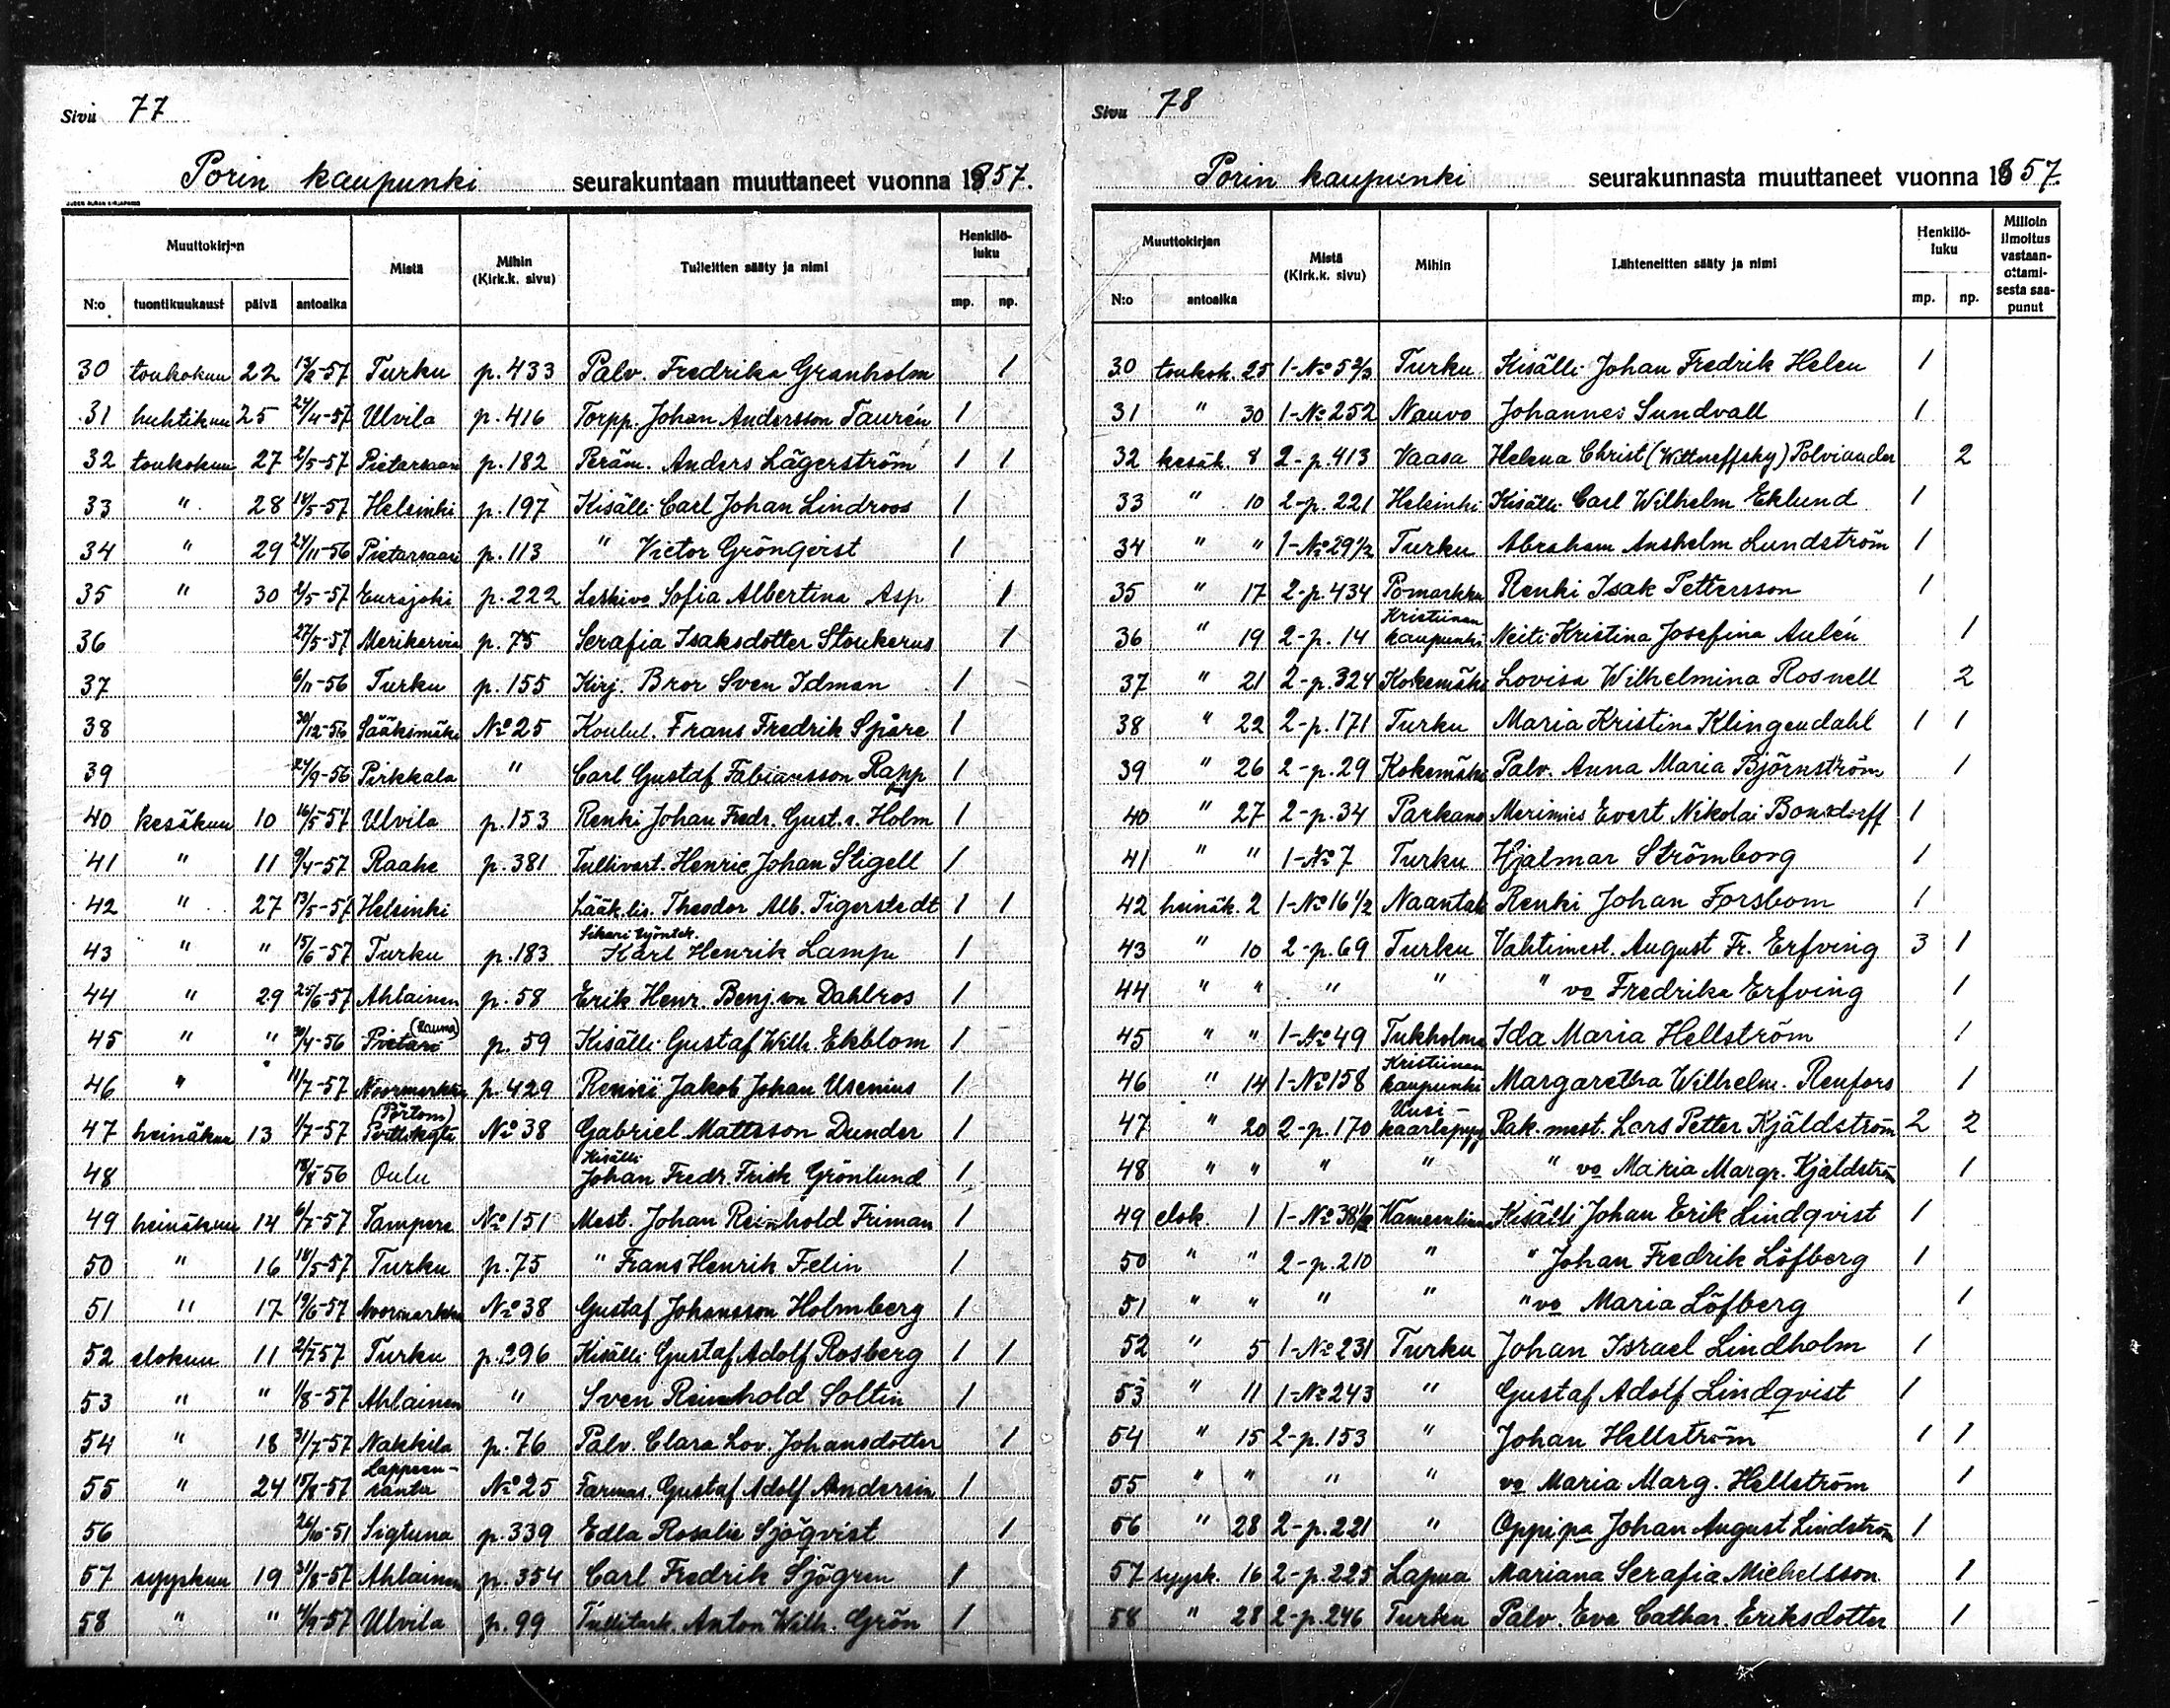 Sivu 77
Porin kaupunki seurakuntaan muuttaneet vuonna 1857.
Muuttokirjan Mistä Mihin (Kirk.k. sivu) Tulleitten sääty ja nimi Henkilöluku
N:o tuontikuukausi päivä antoaika mp. np.
30 toukokuu 22 13/2-57 Turku p.433 Palv. Fredrika Granholm 1
31 huhtikuu 25 24/4-57 Ulvila p.416 Torpp. Johan Andersson Taurén 1
32 toukokuu 27 2/5-57 Pietarsaari p.182 Peräm. Anders Lägerström 1 1
33 " 28 14/5-57 Helsinki p.197 Kisälli Carl Johan Lindroos 1
34 " 29 24/11-56 Pietarsaari p.113 " Victor Gröngvist 1
35 " 30 2/5-57 Eurajoki p.222 Leskivo Sofia Albertina Asp 1
36 27/5-57 Merikarvia p.75 Serafia Isaksdotter Stoukerus 1
37 6/11-56 Turku p.155 Kirj. Bror Sven Idman 1
38 30/12-56 Sääksmäki No 25 Koulul. Frans Fredrik Spåre 1
39 24/9-56 Pirkkala " Carl Gustaf Fabiansson Rapp 1
40 kesäkuu 10 16/5-57 Ulvila p.153 Renki Johan Fredr. Gust. s. Holm 1
41 " 11 9/4-57 Raahe p.381 Tullivart. Henric Johan Stigell 1
42 " 27 13/5-57 Helsinki Lääk.lis. Theodor Alb. Tigerstedt 1 1
43 " " 15/6-57 Turku p.183 Sikarityöntek. Karl Henrik Lampe 1
44 " 29 25/6-57 Ahlainen p.58 Erik Henr. Benj. von Dahlros 1
45 " " 30/4-56 Pietari (Rauma) p.59 Kisälli Gustaf Wilh. Ekblom 1
46 " 11/7-57 Noormarkku p.429 Jakob Johan Usenius 1
47 heinäkuu 13 1/7-57 (Pörtom) Pirttikylä No 38 Gabriel Mattsson Dunder 1
48 18/8 56 Oulu Kisälli Johan Fredr. Frisk Grönlund 1
49 heinäkuu 14 6/7-57 Tampere No 151 Mest. Johan Reinhold Friman 1
50 " 16 14/5-57 Turku p.75 " Frans Henrik Felin 1
51 " 17 19/6-57 Noormarkku No 38 Gustaf Johansson Holmberg 1
52 elokuu 11 2/7 57 Turku p.296 Kisälli Gustaf Adolf Rosberg 1 1
53 " " 1/8-57 Ahlainen " Sven Reinhold Soltin 1
54 " 18 31/7-57 Nakkila p.76 Palv. Clara Lov. Johansdotter 1
55 " 24 15/8-57 Lappeenranta No 25 Farmas. Gustaf Adolf Andersin 1
56 26/10-51 Sigtuna p.339 Edla Rosalie Sjöqvist 1
57 syyskuu 19 31/8-57 Ahlainen p.354 Carl Fredrik Sjögren 1
58 " " 4/9-57 Ulvila p.99 Tullitark. Anton Wilh. Grön 1
Sivu 78
Porin kaupunki seurakunnasta muuttaneet vuonna 1857.
Muuttokirjan Mistä (Kirk.k. sivu) Mihin Lähteneitten sääty ja nimi Henkilöluku Milloin ilmoitus vastaanottamisesta saapunut
N:o antoaika mp. np.
30 toukok. 25 1-No 52/3 Turku Kisälli Johan Fredrik Helen 1
31 " 30 1-No 252 Nauvo Johannes Sundvall 1
32 kesäk. 8 2-p.413 Vaasa Helena Christ (Wittneffsky) Polviander 2
33 " 10 2-p.221 Helsinki Kisälli Carl Wilhelm Eklund 1
34 " " 1-No 29 1/2 Turku Abraham Anshelm Lundström 1
35 " 17 2-p.434 Pomarkku Renki Isak Pettersson 1
36 " 19 2-p.14 Kristiinankaupunki Neiti Kristina Josefina Aulén 1
37 " 21 2-p.324 Kokemäki Lovisa Wilhelmina Rosnell 2
38 " 22 2-p.171 Turku Maria Kristina Klingendahl 1 1
39 " 26 2-p.29 Kokemäki Palv. Anna Maria Björnström 1
40 " 27 2-p.34 Parkano Merimies Evert Nikolai Bonsdorff 1
41 " " 1-No 7 Turku Hjalmar Strömborg 1
42 heinäk. 2 1-No 16 1/2 Naantali Renki Johan Forsbom 1
43 " 10 2-p.69 Turku Vahtimest. August Fr. Erfving 3 1
44 " " " " " vo Fredrika Erfving 1
45 " " 1-No 49 Tukholma Ida Maria Hellström 1
46 " 14 1-No 158 Kristiinankaupunki Margaretha Wilhelm. Renfors 1
47 " 20 2-p.170 Uusi-kaarlepyy Rak. mest. Lars Petter Kjäldström 2 2
48 " " " " " vo Maria Margr. Kjäldström 1
49 elok. 1 1-No 38 1/2 Hämeenlinna Kisälli Johan Erik Lindqvist 1
50 " " 2-p.210 " " Johan Fredrik Löfberg 1
51 " " " " " vo Maria Löfberg 1
52 " 5 1-No 231 Turku Johan Israel Lindholm 1
53 " 11 1-No 243 " Gustaf Adolf Lindqvist 1
54 " 15 2-p.153 " Johan Hellström 1 1
55 " " " " vo Maria Marg. Hellström 1
56 " 28 2-p.221 " Oppipa Johan August Lindström 1
57 syysk. 16 2-p.225 Lapua Mariana Serafia Michelsson 1
58 " 28 2-p.246 Turku Palv. Eva Cathar. Eriksdotter 1